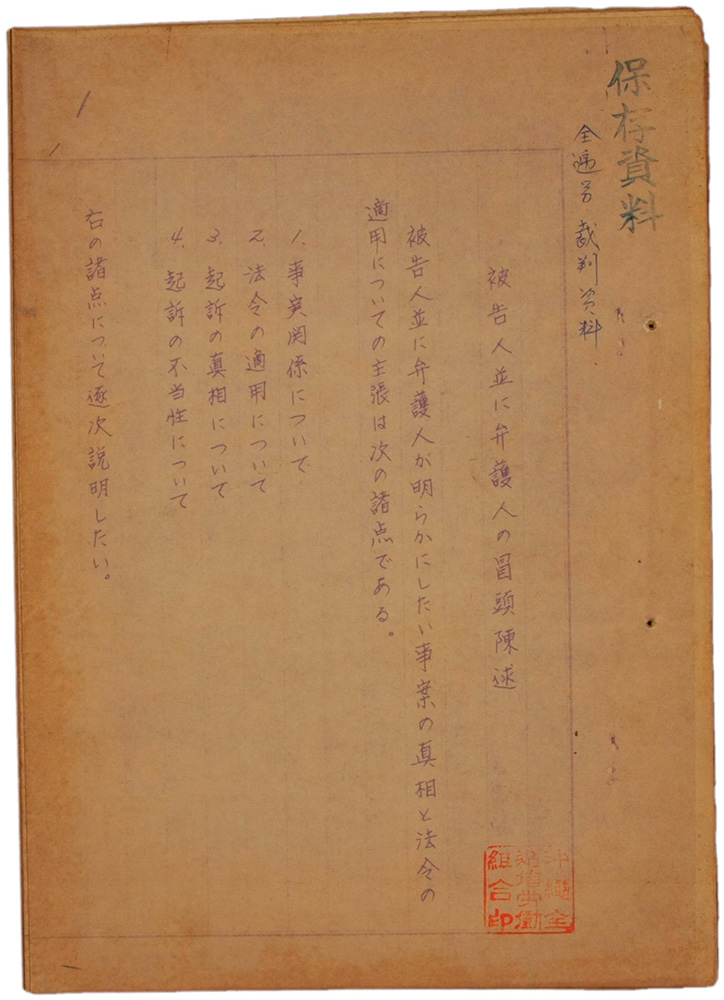 保存資料
全逓労 裁判資料
被告人並に弁護人の冒頭陳述
被告人並に弁護人が明らかにしたい事案の真相と法令の
適用についての主張は次の諸点である。
1. 事実関係について
2. 法令の適用について
3. 起訴の真相について
4. 起訴の不当性について
右の諸点について逐次説明したい。
沖縄全
逓信労働
組合印
1